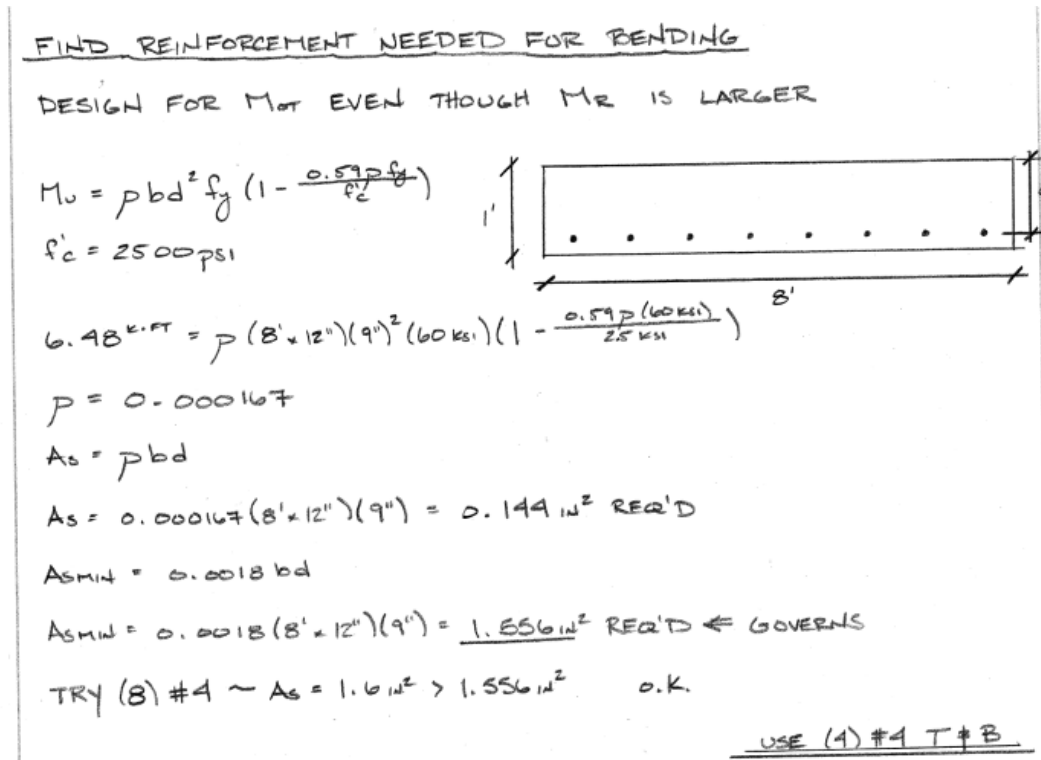 FIND REINFORCEMENT NEEDED FOR BENDING
DESIGN FOR MOT EVEN THOUGH MR IS LARGER
Mu = ρbd² fy (1 - 0.59ρfy / f'c)
f'c = 2500 PSI
1'
8'
6.48 K·FT = ρ (8' × 12") (9")² (60 KSI) (1 - 0.59ρ(60 KSI) / 2.5 KSI)
ρ = 0.000167
As = ρbd
As = 0.000167 (8' × 12") (9") = 0.144 IN² REQ'D
ASMIN = 0.0018 bd
ASMIN = 0.0018 (8' × 12") (9") = 1.556 IN² REQ'D ⇐ GOVERNS
TRY (8) #4 ~ As = 1.6 IN² > 1.556 IN² O.K.
USE (4) #4 T & B